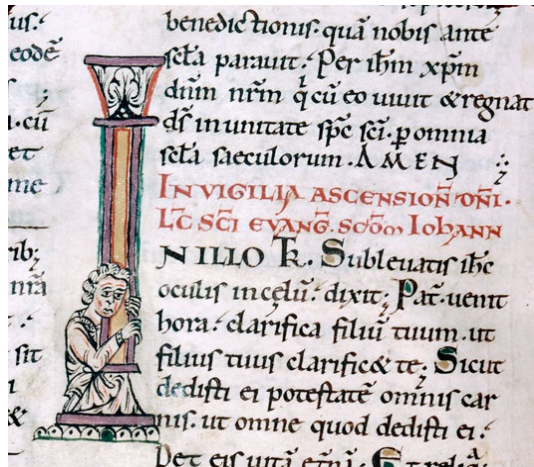 us:
eodē
;
a·cū
et
me
rib;
nr̄a
:
sit
&
benedictionis· quā nobis ante
sc̄la parauit: Per ih̄m xp̄m
dn̄m nr̄m q̇ cū eo uiuit & regnat
ds̄ in unitate sp̄c sc̄i· ꝑ omnia
sc̄la saeculorum· AMEN
IN VIGILIA ASCENSION̄ DN̄I·
LC̄ SC̄I EVANḠ· SCD̄M IOHANN
N ILLO T̄R· Subleuatis ih̄c
oculis in celū: dixit; Pat̄· uenit
hora: clarifica filiū tuum· ut
filius tuus clarific& te; Sicut
dedisti ei potestatē omnis car
nis· ut omne quod dedisti ei:
Det eis uitā et̄nā·